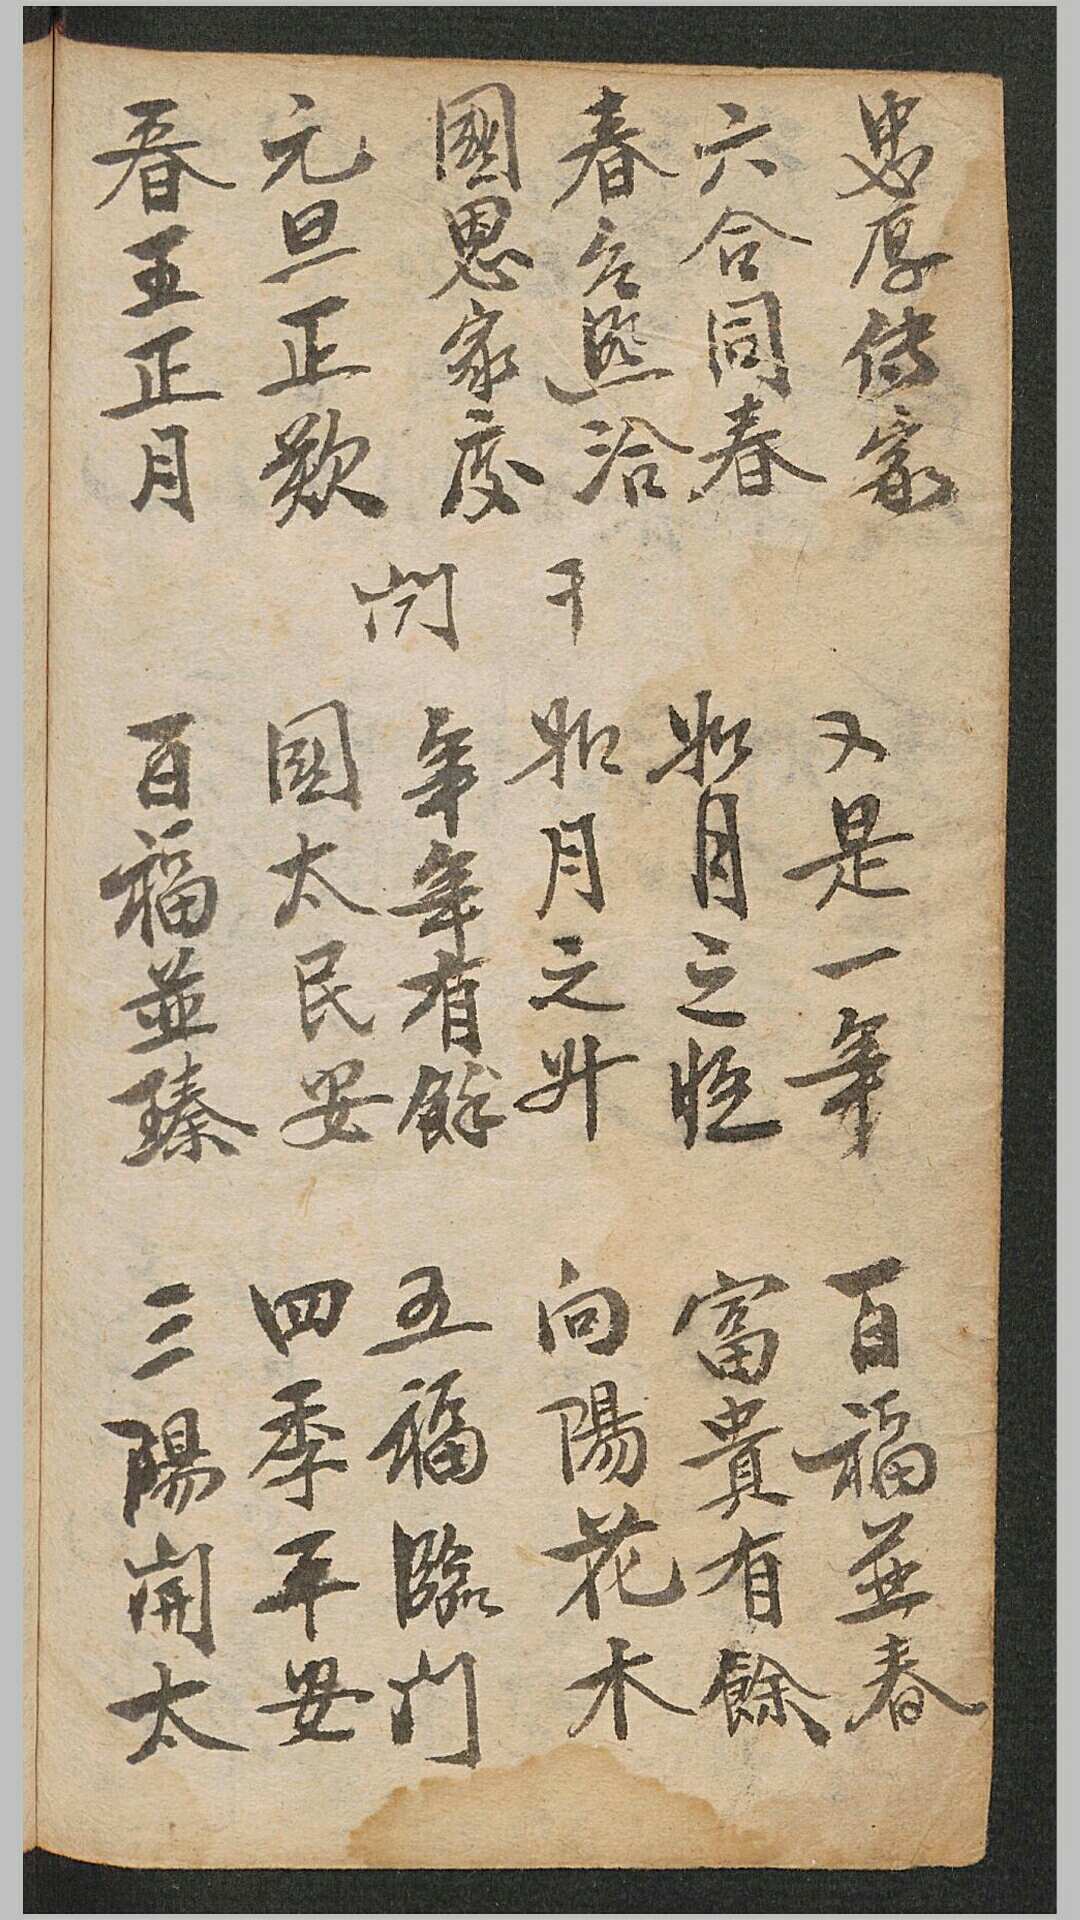 忠厚傳家
六合同春
春台熙洽
國恩家慶
元旦正歡
春王正月
干
開
又是一年
如月之恒
如月之升
年年有餘
國太民安
百福並臻
百福並春
富貴有餘
向陽花木
五福臨門
四季平安
三陽開太